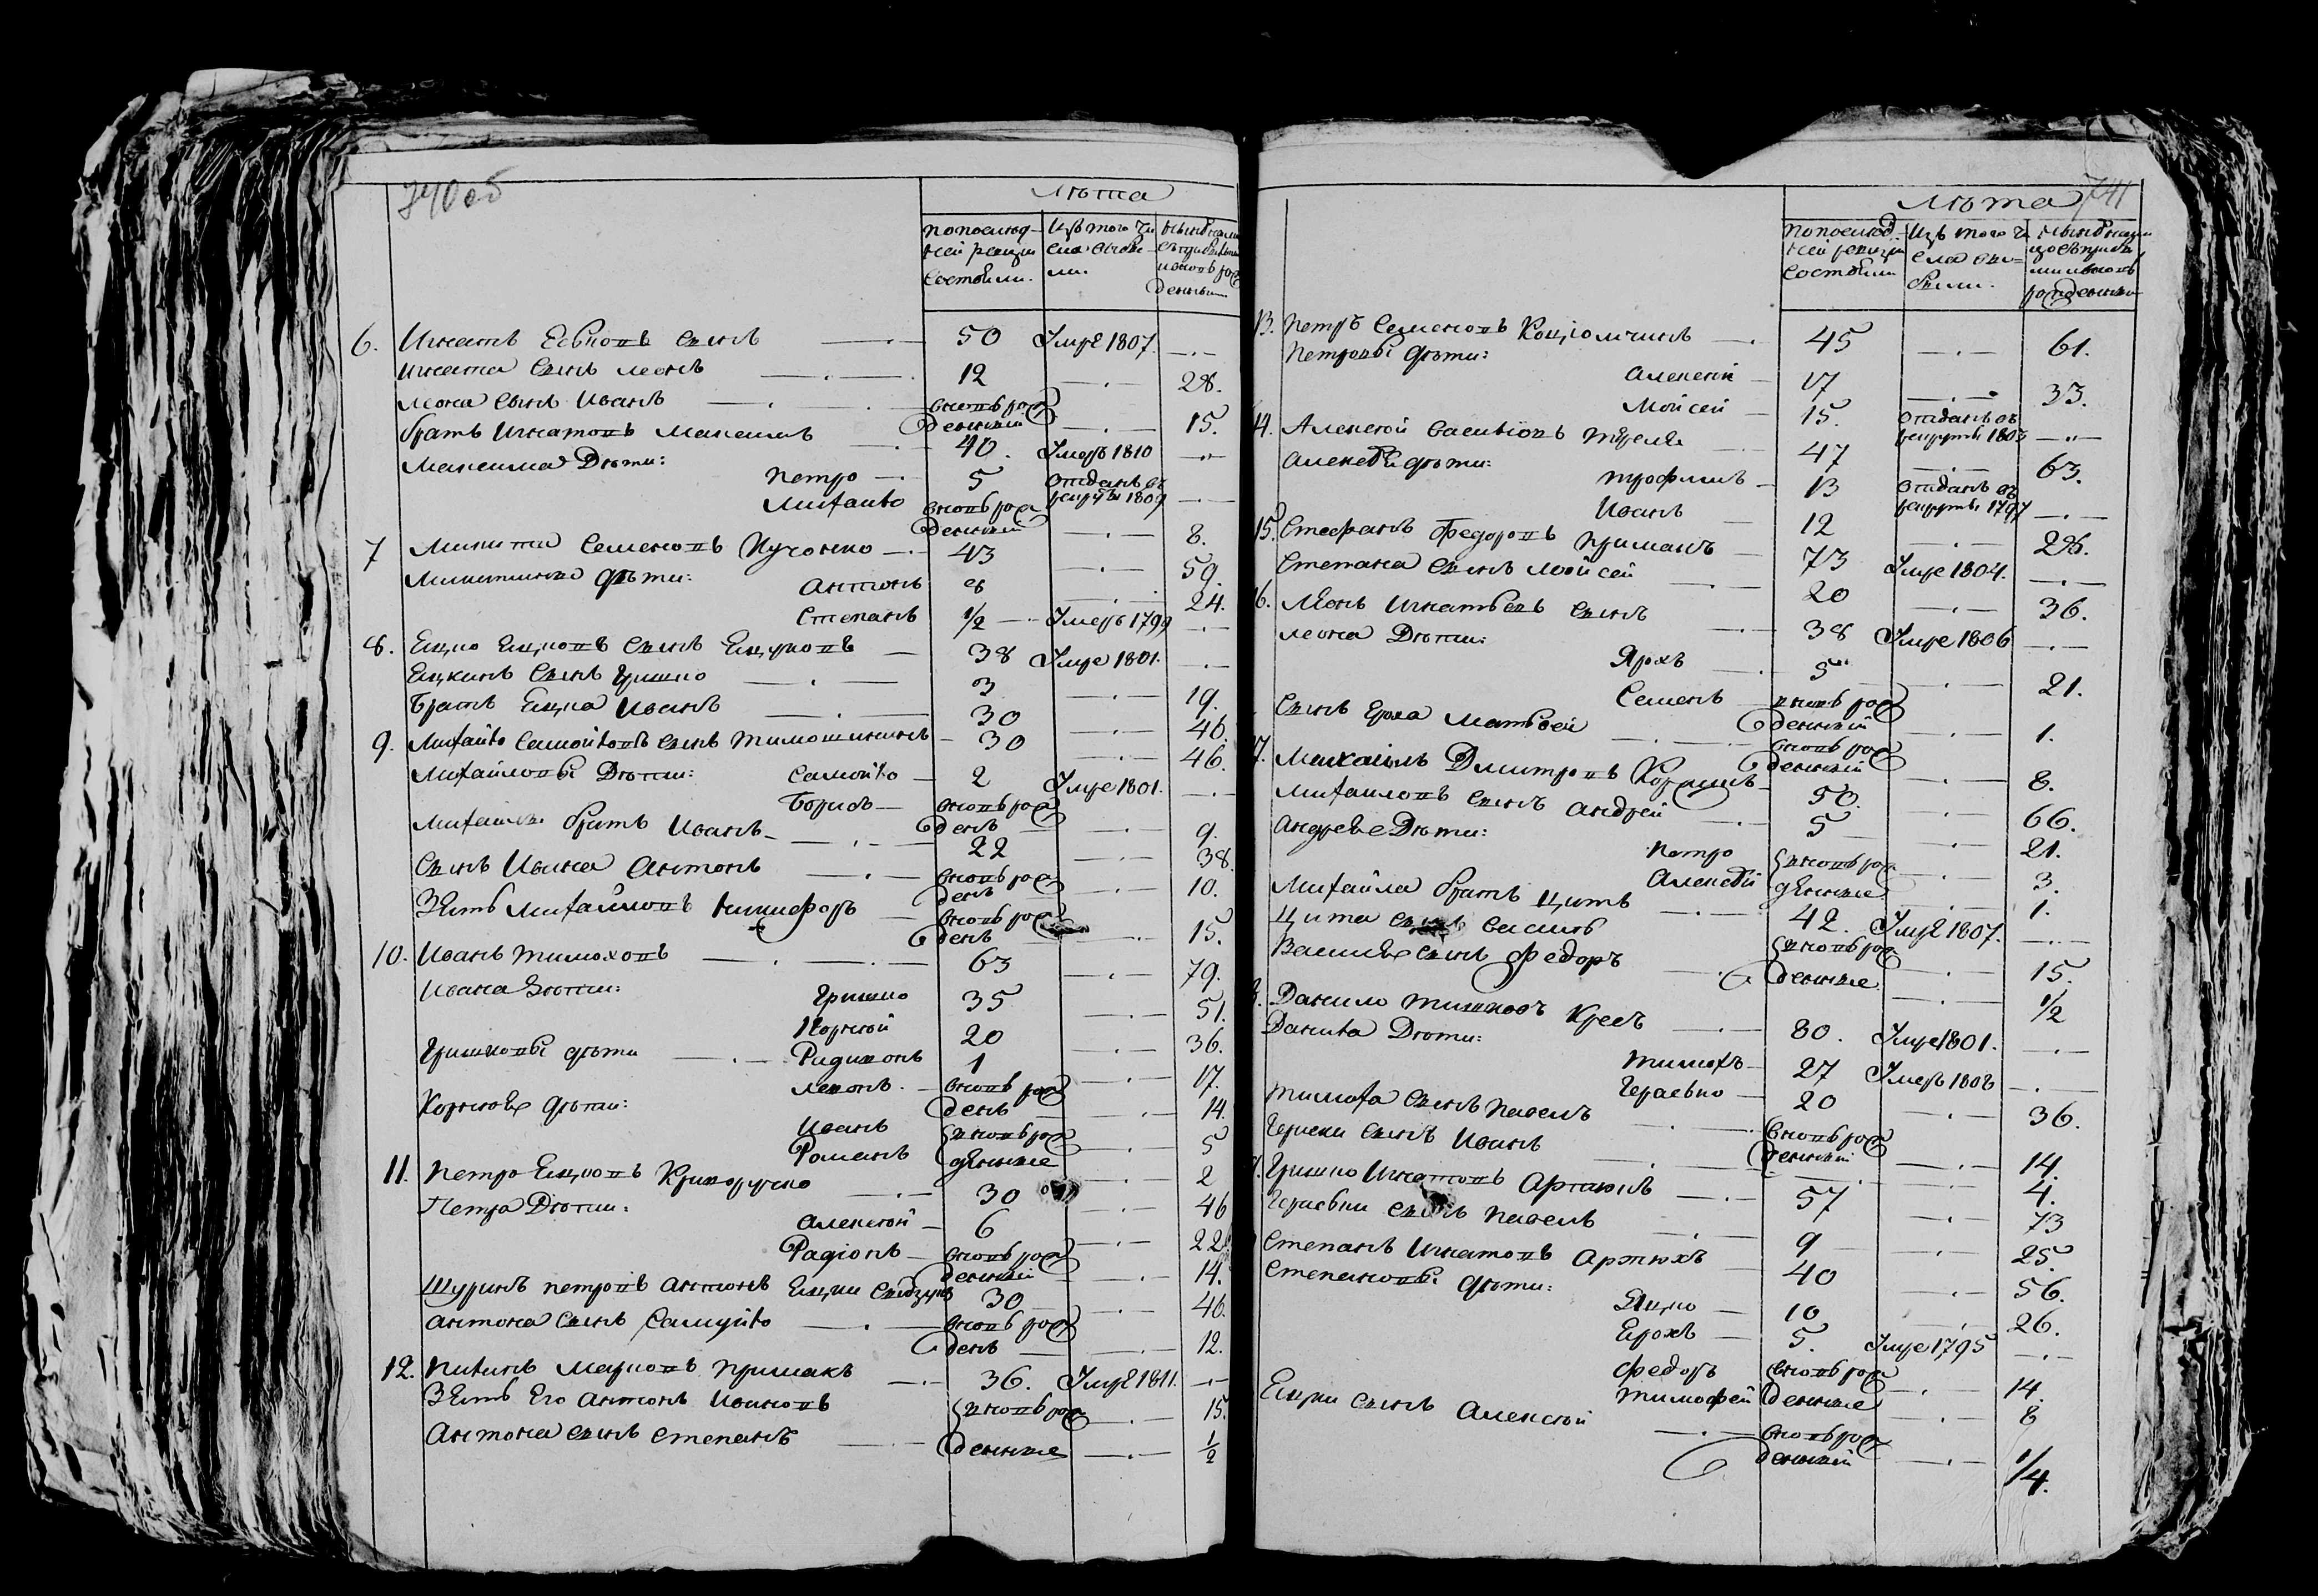 740об
Лѣта
По последней ревизіи состояли.
Изъ того числа выбыли.
6. Игнатъ Евковъ сынъ 50 Умре 1807. —
Игната сынъ Леонъ 12 — 28.
Леона сынъ Иванъ вновь рожденный — 15.
братъ Игнатовъ Максимъ 40. Умеръ 1810 —
Максима Дѣти:
Петро 5 отданъ въ рекруты 1809 —
Михайло вновь рожденный — 8.
7 Микита Семеновъ 43 — 59.
Микитины дѣти: Антонъ 8 — 24.
Степанъ 1/2 Умеръ 1799 —
8. Ицко Ицковъ сынъ Ицуковъ 38 Умре 1801. —
Ицкинъ сынъ Гришко 3 — 19.
Братъ Ицка Иванъ 30 — 46.
9. Михайло Самойловъ сынъ Тимошининъ 30 — 46.
Михайловы Дѣти: Самойло 2 Умре 1801. —
Борисъ вновь рожденъ — 9.
Михайла братъ Иванъ 22 — 38.
Сынъ Ивана Антонъ вновь рожденъ — 10.
Зять Михайловъ Никифоръ вновь рожденъ — 15.
10. Иванъ Тимоховъ 63 — 79.
Ивана Дѣти: Гришко 35 — 51.
Корней 20 — 36.
Гришковы дѣти Радивонъ 1 — 17.
Леонъ вновь рожденъ — 14.
Корнѣевы дѣти:
Иванъ вновь рожденные — 5
Романъ — 2
11. Петро Ицковъ Криворучко 30 — 46
Петра Дѣти:
Алексѣй 6 — 22.
Радіонъ вновь рожденный — 14.
Шуринъ Петровъ Антонъ 30 — 46.
Антона сынъ Самуйло вновь рожденъ — 12.
12. Мацковъ Примакъ 36. Умре 1811. —
Зять Его Антонъ Ивановъ вновь рожденные — 15.
Антона сынъ Степанъ — 1/2
741
Лѣта
По последней ревизіи состояли
Изъ того числа выбыли.
13. Петръ Семеновъ 45 — 61.
Петровы дѣти:
Алексей 17 — 33.
Мойсей 15. отданъ въ рекруты 1803 —
14. Алексей Васильовъ 47 — 63.
Алексѣя дѣти:
Трофимъ 13 отданъ въ рекруты 1797 —
Иванъ 12 — 28.
15. Стефанъ Федоровъ Примакъ 73 Умре 1804. —
Степана сынъ Мойсей 20 — 36.
16. Леонъ Игнатьевъ сынъ 38 Умре 1806 —
Леона Дѣти:
Ярохъ 5 — 21.
Семенъ вновь рожденный — 1.
Сынъ Ероха Матвей вновь рожденный — 8.
17. Михаилъ Дмитровъ 50. — 66.
Михайловъ сынъ Андрей 5 — 21.
Андрѣе Дѣти:
Петро вновь рожденные — 3.
Алексѣй — 1.
Михайла братъ Цитъ 42. Умре 1807. —
Цита сынъ Василь вновь рожденные — 15.
Василье сынъ Федоръ — 1/2
Данило Тишковъ Кресъ 80. Умре 1801. —
Данила Дѣти:
Тимохъ 27 Умеръ 1808 —
Герасько 20 — 36.
Тимоха сынъ Павелъ вновь рожденный — 14.
Гераски сынъ Иванъ — 4.
Гришко Игнатовъ Артюхъ 57 — 73
сынъ Павелъ 9 — 25.
Степанъ Игнатовъ Артюхъ 40 — 56.
Степановы дѣти:
Яцко 10 — 26.
Ерохъ 5. Умре 1795 —
Федоръ вновь рожденные — 14.
Тимофей — 8
Сынъ Алексей вновь рожденный — 1/4.